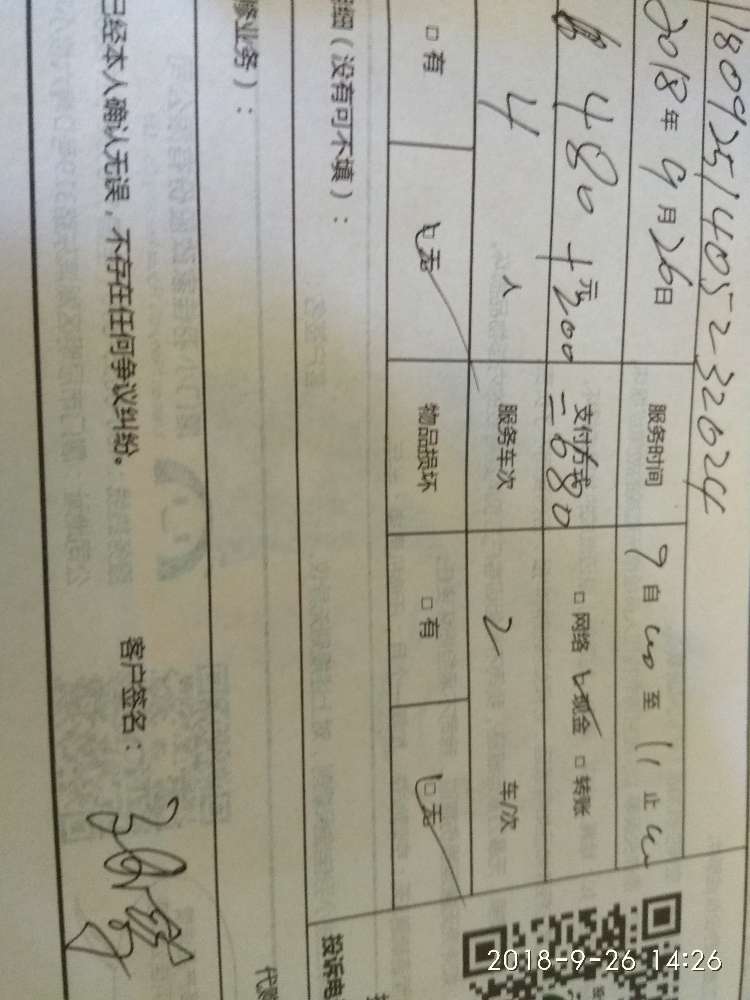 18092514052 32024
2018年9月26日 服务时间 9自00至11止00
480元+200 支付方式 □网络 □现金 □转账
=680
4人 服务车次 2 车/次
□有 □无 物品损坏 □有 □无
细（没有可不填）：
业务）：
已经本人确认无误，不存在任何争议纠纷。 客户签名：
投诉电
代
2018-9-26 14:26